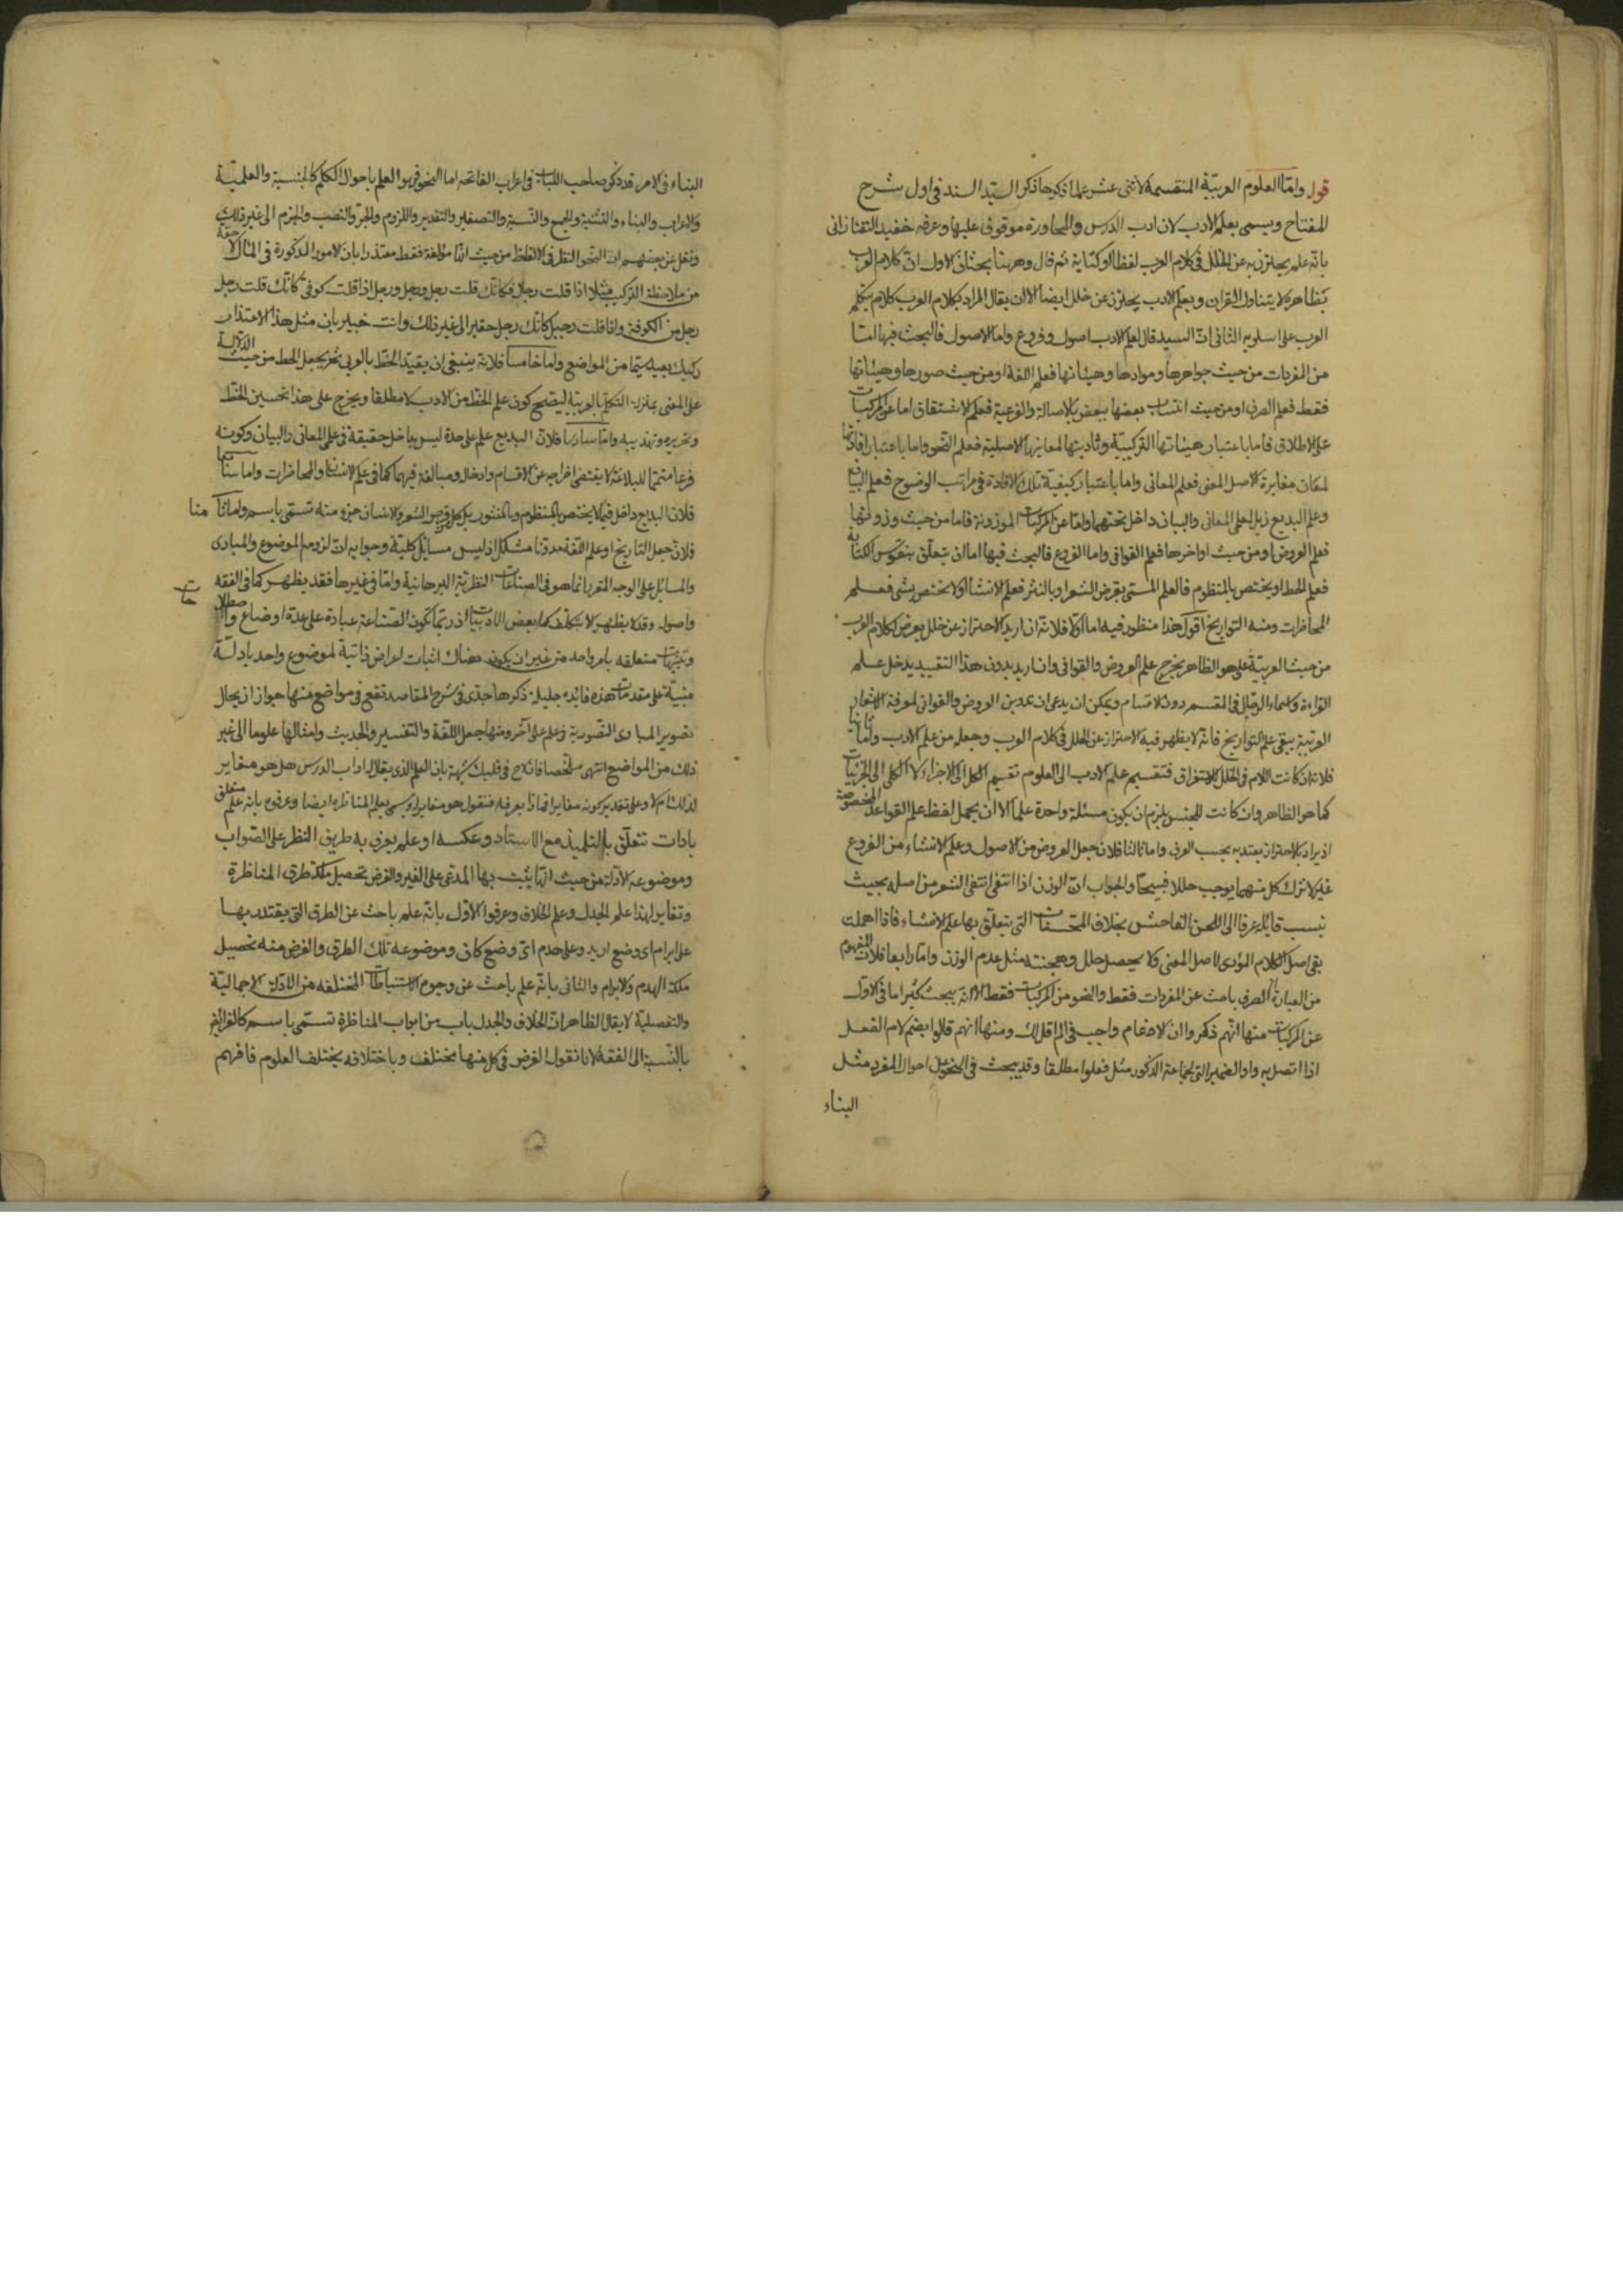 قوله واما العلوم العربية المنقسمة لاثنى عشر علما ذكرها ذكر السيد السند فى اول شرح
المفتاح ويسمى بعلم الادب لان ادب الدرس والمحاورة موقوف عليها وعرفه حفيد التفتازانى
بانه علم يحترز به عن الخلل فى كلام العرب لفظا او كتابة ثم قال وههنا بحثان الاول ان كلام العرب
بظاهره لا يتناول القران وبعلم الادب يحترز عن خلله ايضا الا ان يقال المراد بكلام العرب كلام يتكلم
العرب على اسلوبه الثانى ان السيد قال لعلم الادب اصول وفروع واما الاصول فالبحث فيها اما
من المفردات من حيث جواهرها وموادها وهيئاتها فعلم اللغة او من حيث صورها وهيئاتها
فقط فعلم الصرف او من حيث انتساب بعضها ببعض بالاصالة والفرعية فعلم الاشتقاق اما عن المركبات
على الاطلاق فاما باعتبار هيئاتها التركيبية وتأديتها لمعانيها الاصلية فعلم النحو واما باعتبار افادتها
لمعان مغايرة لاصل المعنى فعلم المعانى واما باعتبار كيفية تلك الافادة فى مراتب الوضوح فعلم البيان
وعلم البديع ذيل لعلمى المعانى والبيان داخل تحتهما واما عن المركبات الموزونة فاما من حيث وزونها
فعلم العروض او من حيث اواخرها فعلم القوافى واما الفروع فالبحث فيها اما ان يتعلق بنقوش الكتابة
فعلم الخط او يختص بالمنظوم فالعلم المسمى بقرض الشعر او بالنثر فعلم الانشا او لا يختص بشى فعلم
المحاضرات ومنه التواريخ اقول هذا منظور فيه اما اولا فلانه ان اريد الاحتراز عن خلل يعرض لكلام العرب
من حيث العربية على هو الظاهر يخرج علم العروض والقوافى وان اريد بدون هذا التقييد يدخل علم
القراءة واسماء الرجال فى المقسم دون الاقسام ويمكن ان يدعى ان تدوين العروض والقوافى لمعرفة الاشعار
العربية يبقى علم التواريخ فانه لا يظهر فيه الاحتراز عن الخلل فى كلام العرب وجعله من علم الادب واما ثانيا
فلانه ان كانت اللام فى الخلل للاستغراق فتقسيم علم الادب الى العلوم تقسيم الكل الى الاجزاء لا الكلى الى الجزئيات
كما هو الظاهر وان كانت للجنس يلزم ان يكون مسئلة واحدة علما الا ان يحمل لفظ علم القواعد المخصوصة
اذ يراد بالاحتراز يعتد به بحسب العرف واما ثالثا فلان جعل العروض من الاصول وعلم الانشاء من الفروع
غير لان ترك كل منهما يوجب خللا فبيحا والجواب ان الوزن اذا انتفى انتفى الشعر من اصله بحيث
ينسب قايله عرفا الى اللحن الفاحش بخلاف المحسنات التى يتعلق بها علم الانشاء فاذا اهملت
بقى اصل الكلام المؤدى لاصل المعنى ولا يحصل خلل وهجنته مثل عدم الوزن واما رابعا فلان المفهوم
من العبارة ان الصرف باحث عن المفردات فقط والنحو من المركبات فقط الا انه يبحث كثيرا ما فى الاول
عن المركبات منها انهم ذكروا ان الادغام واجب فى الم اقل لك ومنها انهم قالوا بضم لام الفعل
اذا اتصل به واو الضمير التى لجماعة الذكور مثل فعلوا مطلقا وقد يبحث فى النحو عن احوال المفرد مثل
البناء
البناء فى الامر قد ذكر صاحب اللباب فى اعراب الفاتحه اما النحو فهو العلم باحوال الكلم كالجنسية والعلمية
والاعراب والبناء والتثنية والجمع والنسبة والتصغير والتقدير واللزوم والجر والنصب والجزم الى غير ذلك
ونقل عن بعضهم ان النحو النظر فى الالفاظ من حيث انها مؤلفة فقط معتذرا بان الامور المذكورة فى المثال لاحقة
من ملاحظة التركيب مثلا اذا قلت رجال فكانك قلت رجل ورجل ورجل اذا قلت كوفى كانك قلت رجل
رجل من الكوفة واذا قلت رجيل كانك رجل حقير الى غير ذلك وانت خبير بان مثل هذا الاعتذار
ركيك بعيد سيما من المواضع واما خامسا فلانه ينبغى ان يقيد الخط بالعربى ثم يجعل الخط من حيث الدلالة
على المعنى بمنزلة التكلم بالعربية ليتضح كون علم الخط من الادب لا مطلقا ويخرج على هذا تحسين الخط
وتحريره وتهذيبه واما سادسا فلان البديع علم على حدة ليس بداخل حقيقة فى علمى المعانى والبيان وكونه
فرعا متمما للبلاغة لا يقتضى اخراجه عن الاقسام وادخاله ومبالغة فيهما كما فى علم الانشا والمحاضرات واما سابعا
فلان البديع داخل فيما لا يختص بالمنظوم وبالمنثور بل كل قرض الشعر والانسان جزء منه تسمى باسم واما ثامنا
فلان جعل التاريخ او علم اللغة مدونا مشكل اذ ليس مسائل كلية وجوابه ان لزوم الموضوع والمبادى
والمسائل على الوجه المقرر انما هو فى الصناعات النظرية البرهانية واما فى غيرها فقد يظهر كما فى الفقه
واصوله وقد لا يظهر الا بتكلف كما بعض الادبيات اذ ربما تكون الصناعة عبارة على عدة اوضاع واصطلاحات
وتنبيهات متعلقه بامر واحد من غير ان يكون هناك اثبات اعراض ذاتية لموضوع واحد بادلة
مبنية على مقدمات هذه فائدة جليلة ذكرها جدى فى شرح المقاصد تقع فى مواضع منها جواز ان يحال
تصوير المبادى التصورية فى علم على آخر ومنها جعل اللغة والتفسير والحديث وامثالها علوما الى غير
ذلك من المواضع انتهى ملخصا فان لاح فى قلبك شبهة بان العلم الذى يقال له اداب الدرس هل هو مغاير
لذلك ام لا وعلى تقدير كونه مغايرا فماذا يعرف به فنقول هو مغاير له ويسمى بعلم المناظره ايضا وعرفوه بانه علم متعلق
بادات تتعلق بالتلميذ مع الاستاد وعكسه او علم يعرف به طريق النظر على الصواب
وموضوعه الادلة من حيث انها يثبت بها المدعى على الغير والغرض تحصيل ملكة طرق المناظرة
وتغاير لهذا علم الجدل وعلم الخلاف وعرفوا الاول بانه علم باحث عن الطرق التى يقتدر بها
على ابرام اى وضع اريد وعلى هدم اى وضع كان وموضوعه تلك الطرق والغرض منه تحصيل
ملكة الهدم والابرام والثانى بانه علم باحث عن وجوه الاستنباطات المختلفه من الادلة الاجمالية
والتفصيلية لا يقال الظاهر ان الخلاف والجدل باب من ابواب المناظرة تسمى باسم كالفرائض
بالنسبة الى الفقه لانا نقول الغرض فى كل منهما مختلف وباختلافه يختلف العلوم فافهم